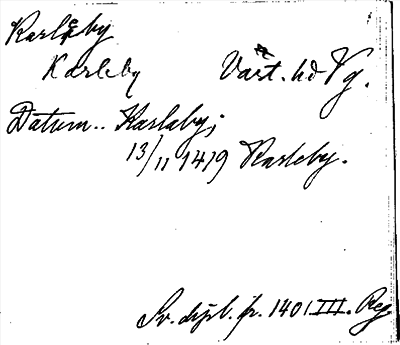 Karleby
Karleby Vart. hd Vg.
Datum.. Karlaby;
13/11 1419 Karleby.
Sv. dipl. fr. 1401 III. Reg